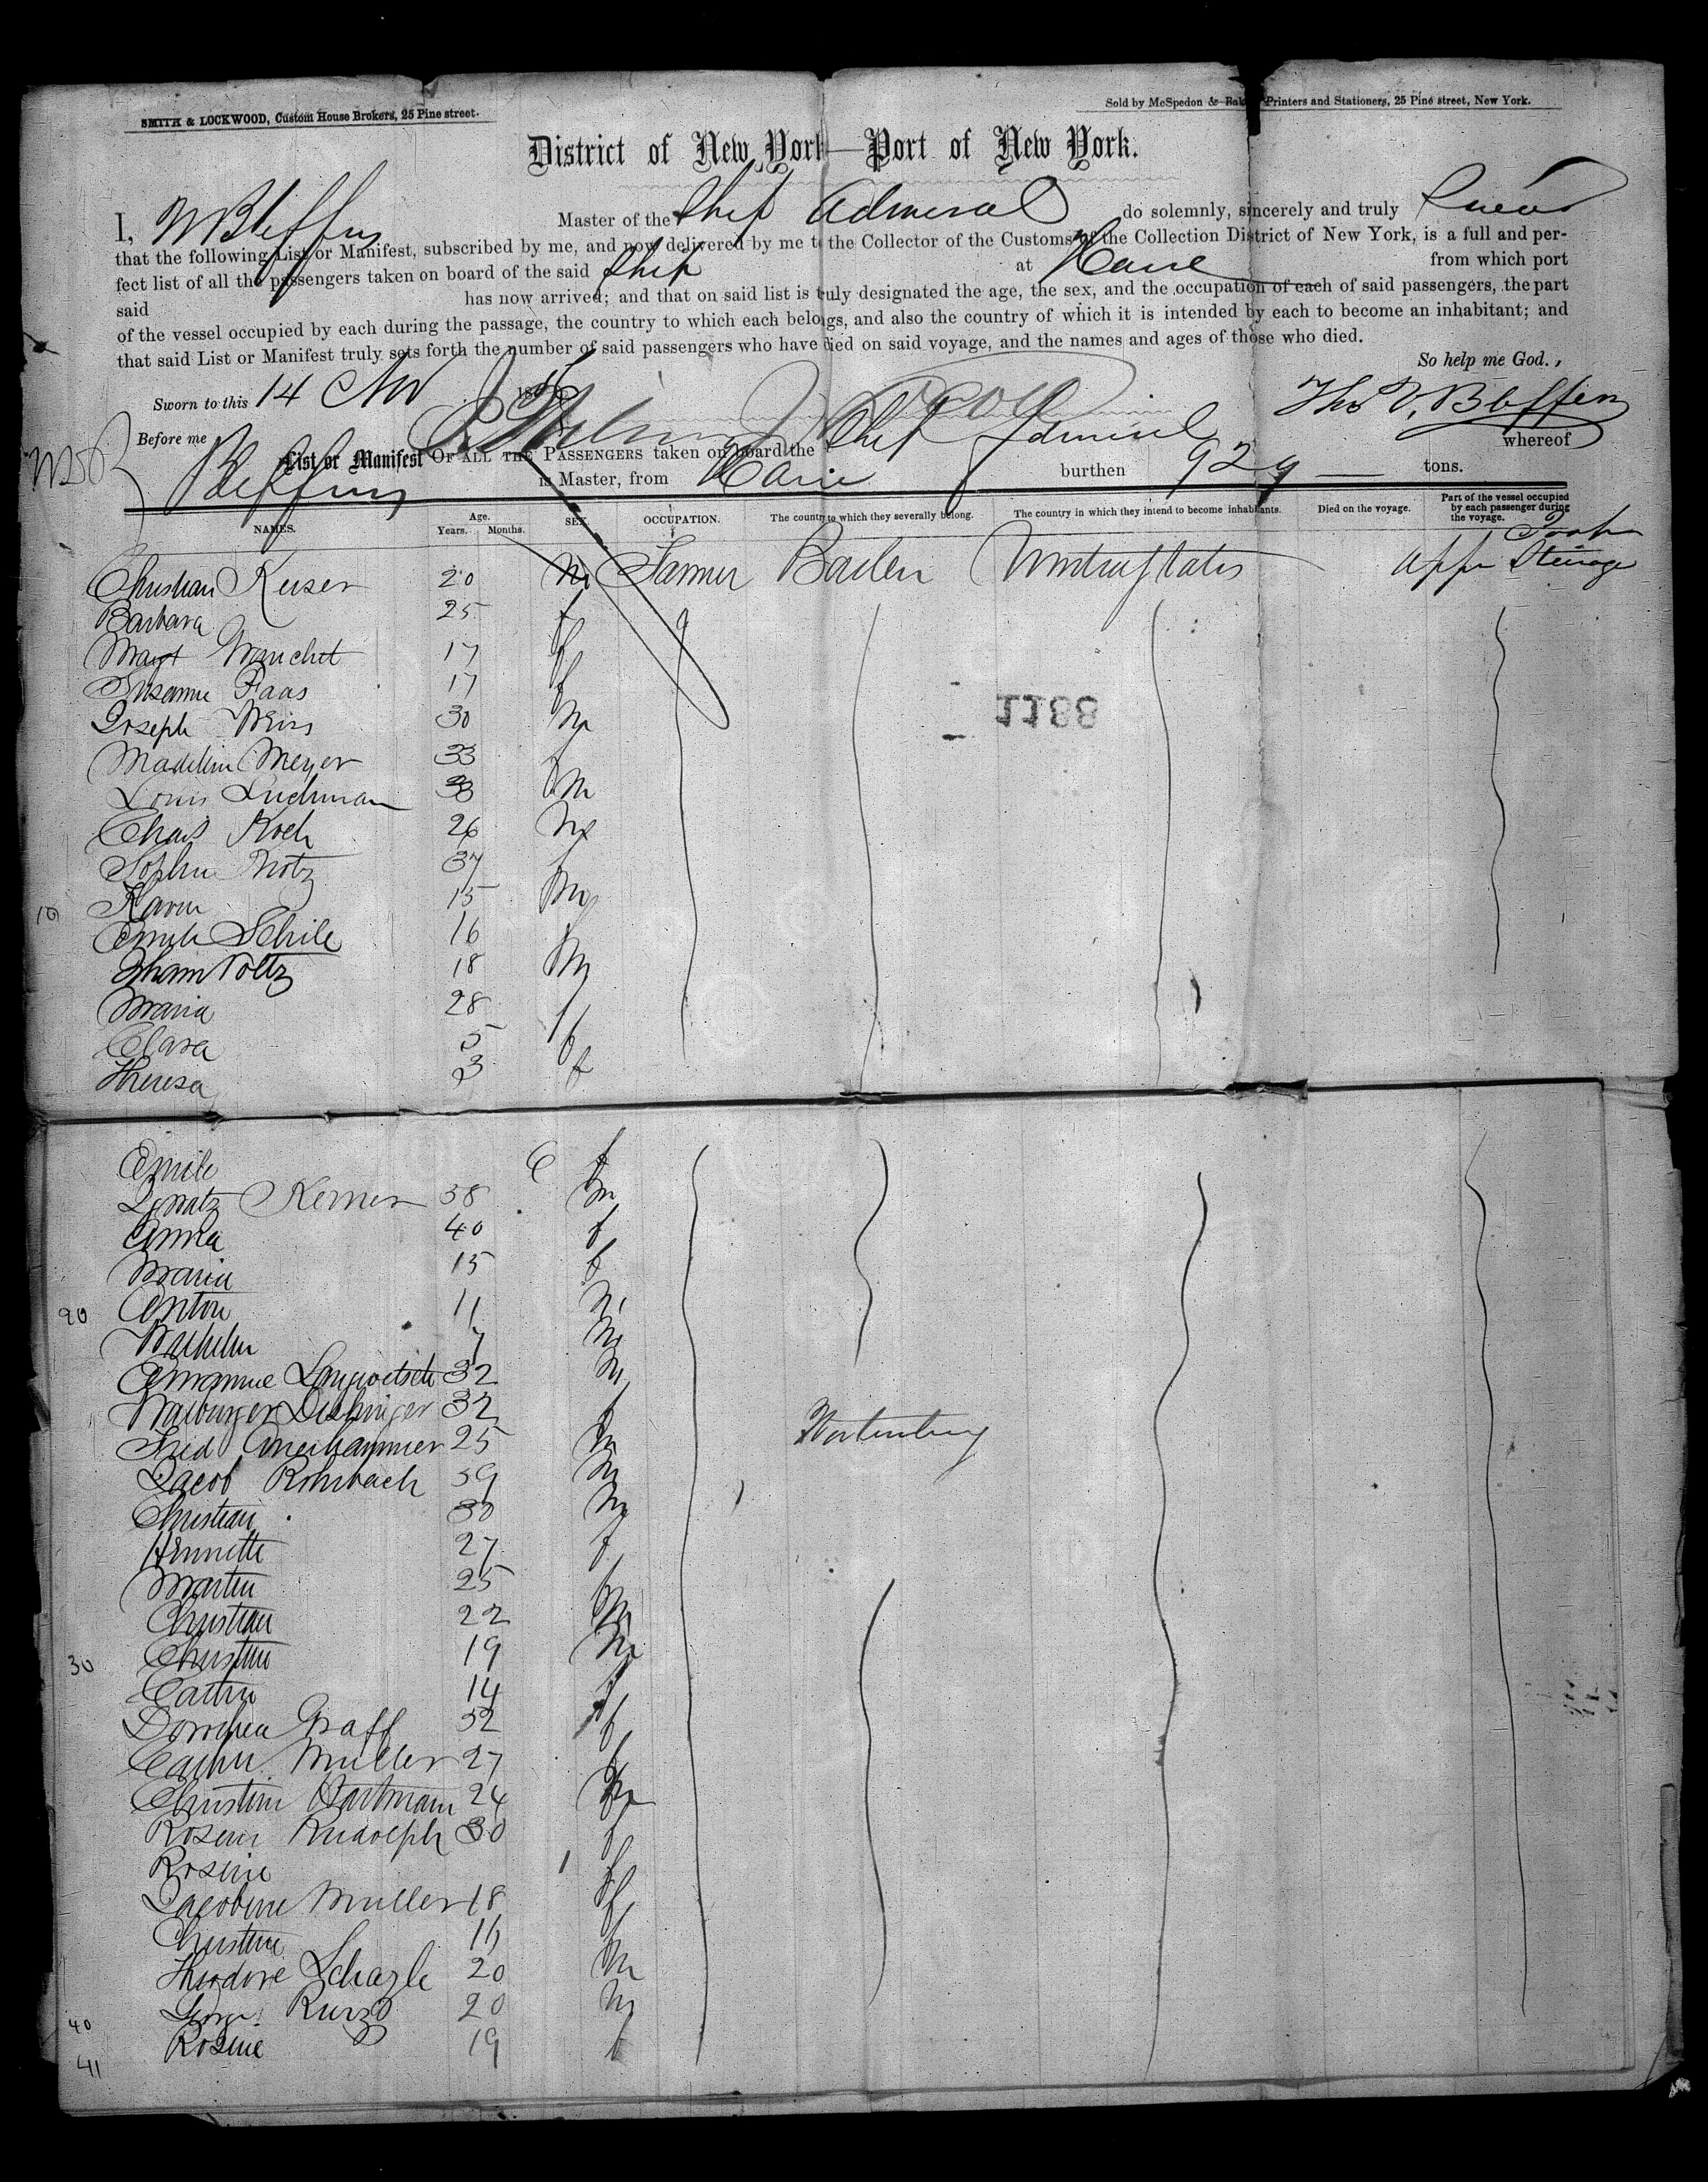 SMITH & LOCKWOOD, Custom House Brokers, 25 Pine street.
Sold by McSpedon & Baker Printers and Stationers, 25 Pine street, New York.
District of New York—Port of New York.
I, Master of the Ship Admiral do solemnly, sincerely and truly Swear
that the following List or Manifest, subscribed by me, and now delivered by me to the Collector of the Customs of the Collection District of New York, is a full and per-
fect list of all the passengers taken on board of the said Ship at Havre from which port
said has now arrived; and that on said list is truly designated the age, the sex, and the occupation of each of said passengers, the part
of the vessel occupied by each during the passage, the country to which each belongs, and also the country of which it is intended by each to become an inhabitant; and
that said List or Manifest truly sets forth the number of said passengers who have died on said voyage, and the names and ages of those who died.
So help me God.,
Sworn to this 14 Nov 185
Before me
List or Manifest OF ALL THE PASSENGERS taken on board the Ship Admiral whereof
is Master, from Havre burthen 929 tons.
NAMES. Age. Years. Months. SEX. OCCUPATION. The country to which they severally belong. The country in which they intend to become inhabitants. Died on the voyage. Part of the vessel occupied by each passenger during the voyage.
Christian Keiser 20 m Farmer Baden United States upper Steerage
Barbara 25 f
Margt 17 f
Susanne Faas 17 f
Joseph Weiss 30 m
1188
Madeline Meyer 33 f
Louis 33 m
Chas Koch 26 m
Sophie Notz 37 f
10 15 m
Emile Schile 16
Voltz 18 m
Maria 28 f
Clara 5 f
Theresa 3 f
Emile 6 f
Ignatz Kerner 38 m
Anna 40 f
Maria 15 f
20 Anton 11 m
Wilhelm 7 m
32 m
32 f
Fred 25 m Wurtemburg
Jacob Rohrbach 59 m
Christian 30 m
Hennette 27 f
Martin 25 m
Christian 22 m
30 Christine 19
Cathr 14 f
Dorothea Graff 52 f
Cathr Muller 27 f
Christine Hartmann 24
Rosene Rudolph 30 f
Rosine 1 f
Jacobine Muller 18 f
Christine f
Theodore Schazle 20 m
40 George Kurz 20 m
41 Rosine 19 f